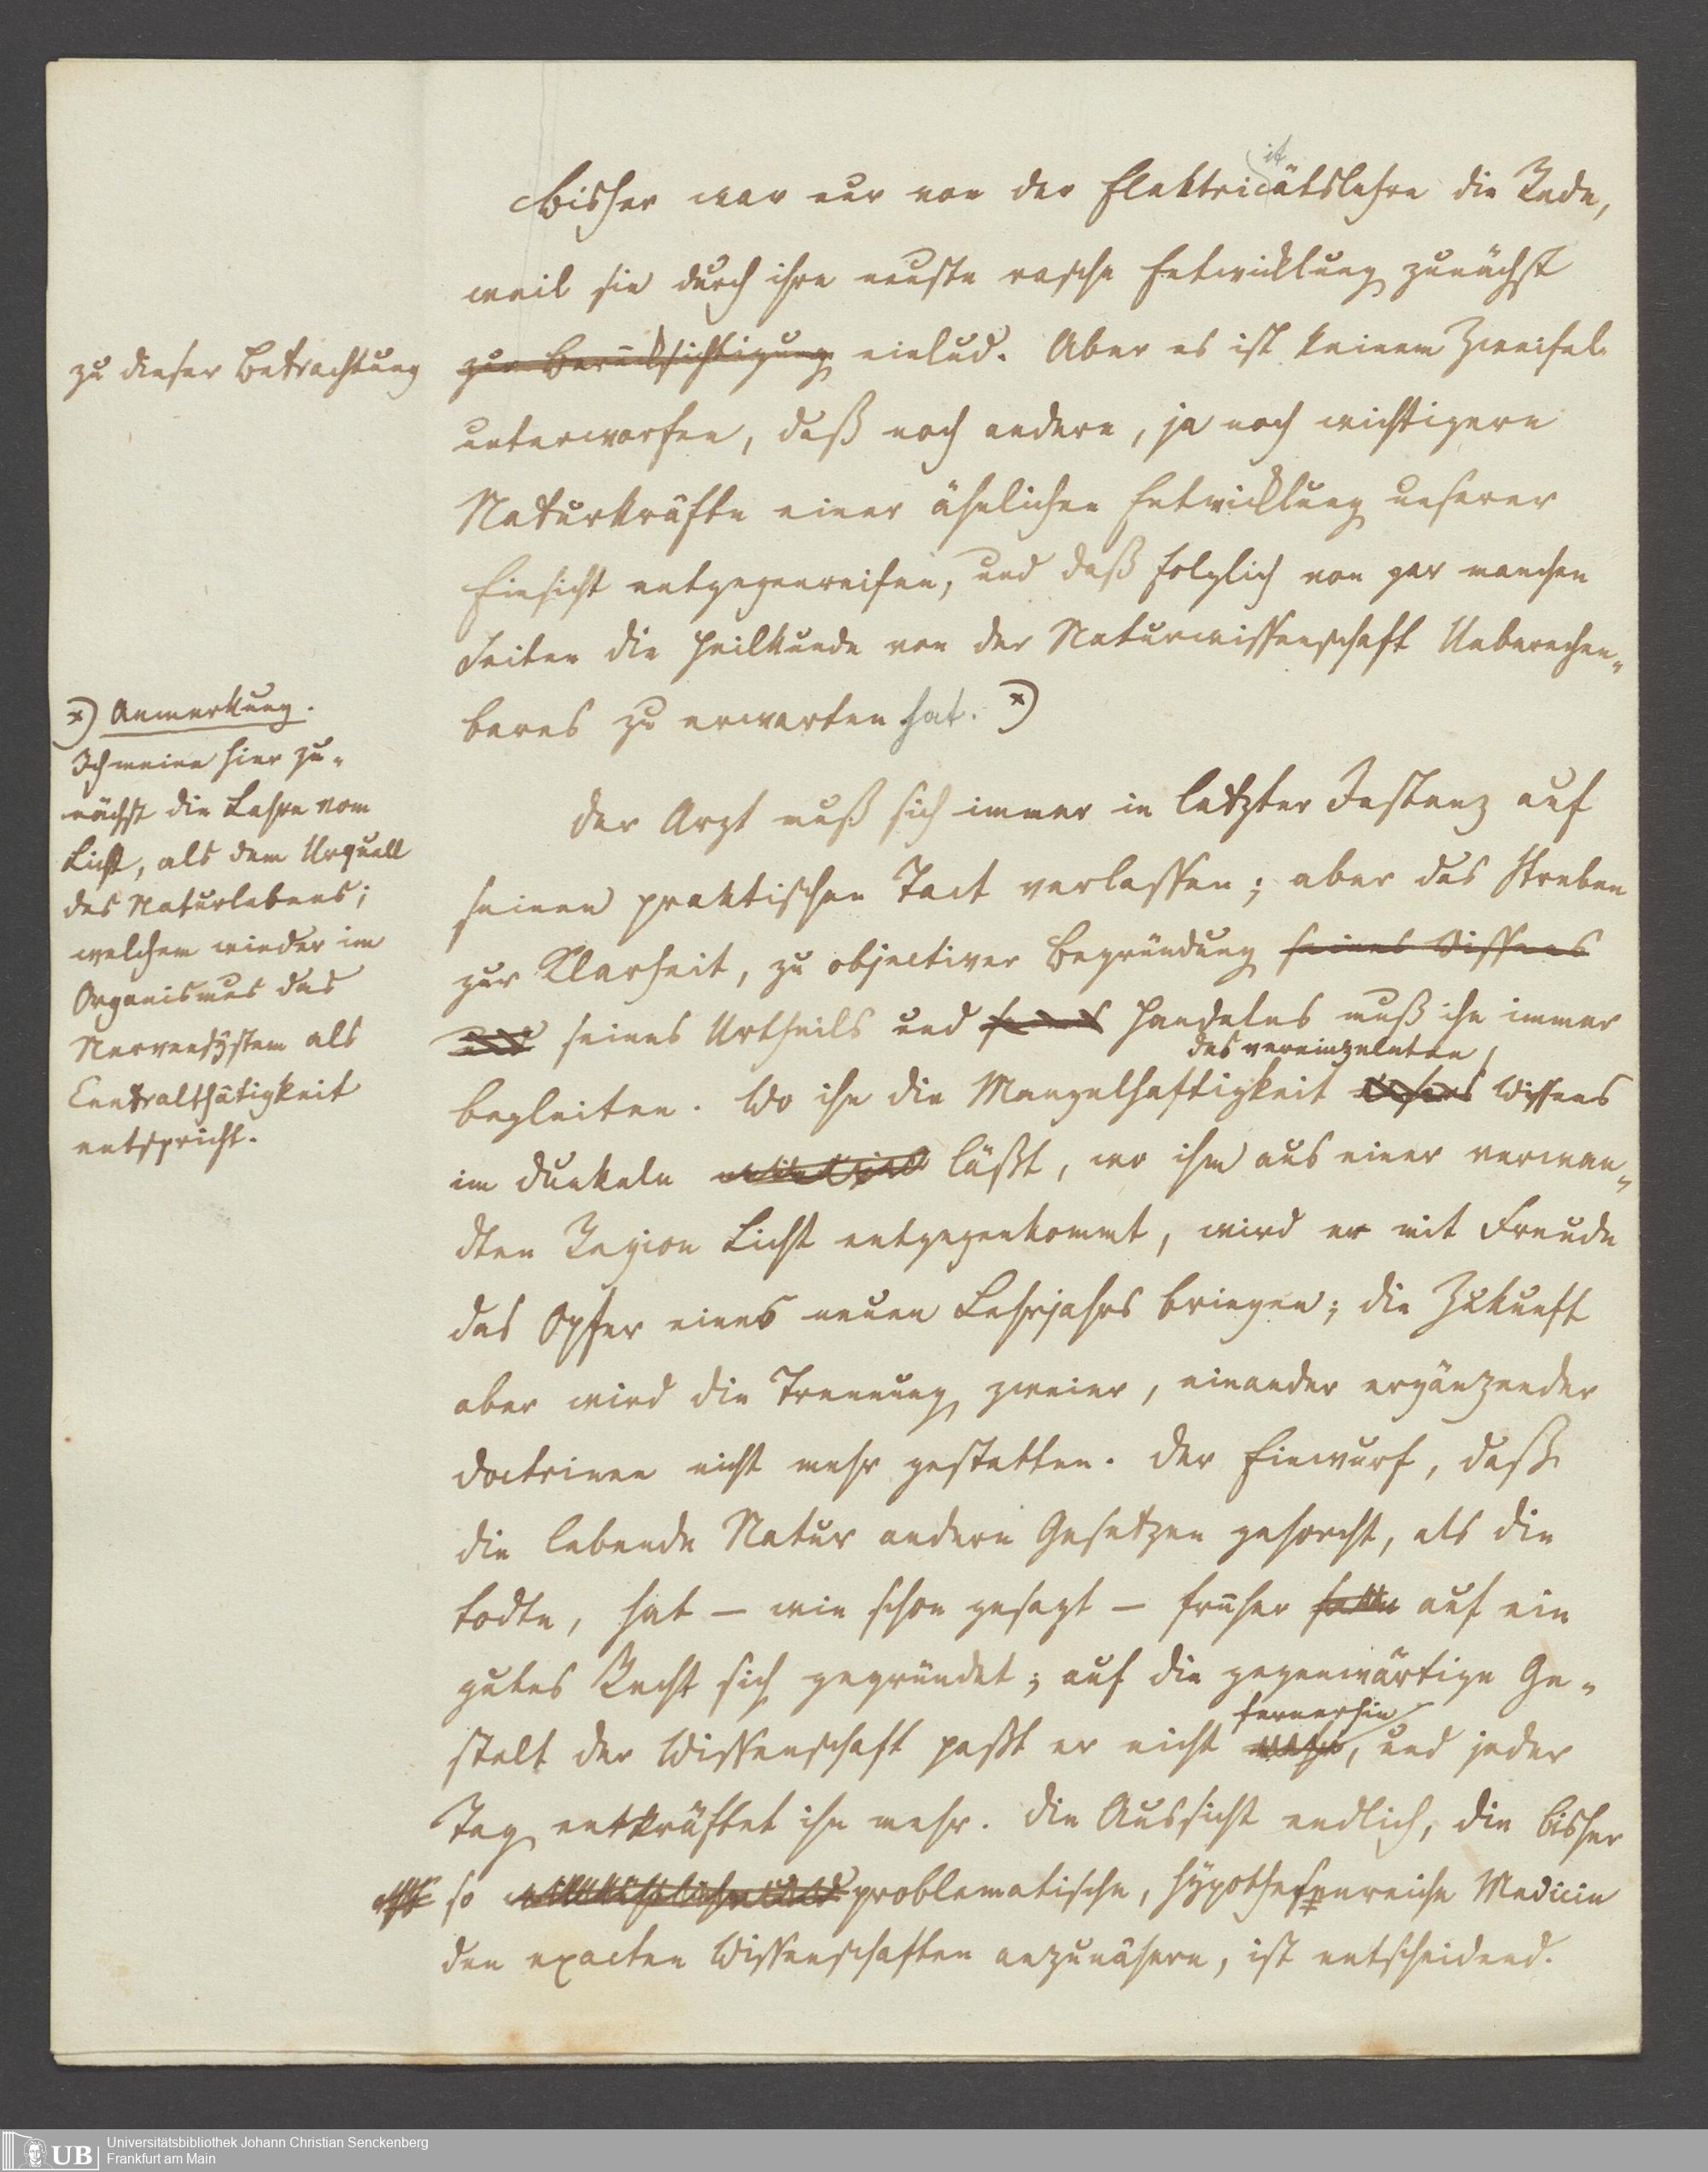 Bisher war nur von der Elektricitätslehre die Rede,
weil sie durch ihre neuste rasche Entwicklung zunächst
zu dieser Betrachtung
zur Berücksichtigung einlud. Aber es ist keinem Zweifel
unterworfen, daß noch andere, ja noch wichtigere
Naturkräfte einer ähnlichen Entwicklung unserer
Einsicht entgegenreifen, und daß folglich von gar manchen
Seiten die Heilkunde von der Naturwissenschaft Unberechen-
bares zu erwarten hat. *)
*) Anmerkung.
Ich meine hier zu-
nächst die Lehre vom
Licht, als dem Urquell
des Naturlebens;
welchem wieder im
Organismus das
Nervensÿstem als
Centralthätigkeit
entspricht.
Der Arzt muß sich immer in letzter Instanz auf
seinen praktischen Tact verlassen; aber das Streben
zur Klarheit, zu objectiver Begründung seines Wissens
und seines Urtheils und seines Handelns muß ihn immer
des vereinzelnten
begleiten. Wo ihn die Mangelhaftigkeit Wissens
im Dunkeln läßt, wo ihm aus einer verwan-
dten Region Licht entgegenkommt, wird er mit Freude
das Opfer eines neuen Lehrjahrs bringen; die Zukunft
aber wird die Trennung zweier, einander ergänzender
Doctrinen nicht mehr gestatten. Der Einwurf, daß
die lebende Natur andern Gesetzen gehorcht, als die
todte, hat – wie schon gesagt – früher hatte auf ein
gutes Recht sich gegründet; auf die gegenwärtige Ge-
fernerhin
stalt der Wissenschaft paßt er nicht mehr, und jeder
Tag entkräftet ihn mehr. Die Aussicht endlich, die bisher
so problematische, hÿpothesenreiche Medicin
den exacten Wissenschaften anzunähern, ist entscheidend.
UB
Universitätsbibliothek Johann Christian Senckenberg
Frankfurt am Main